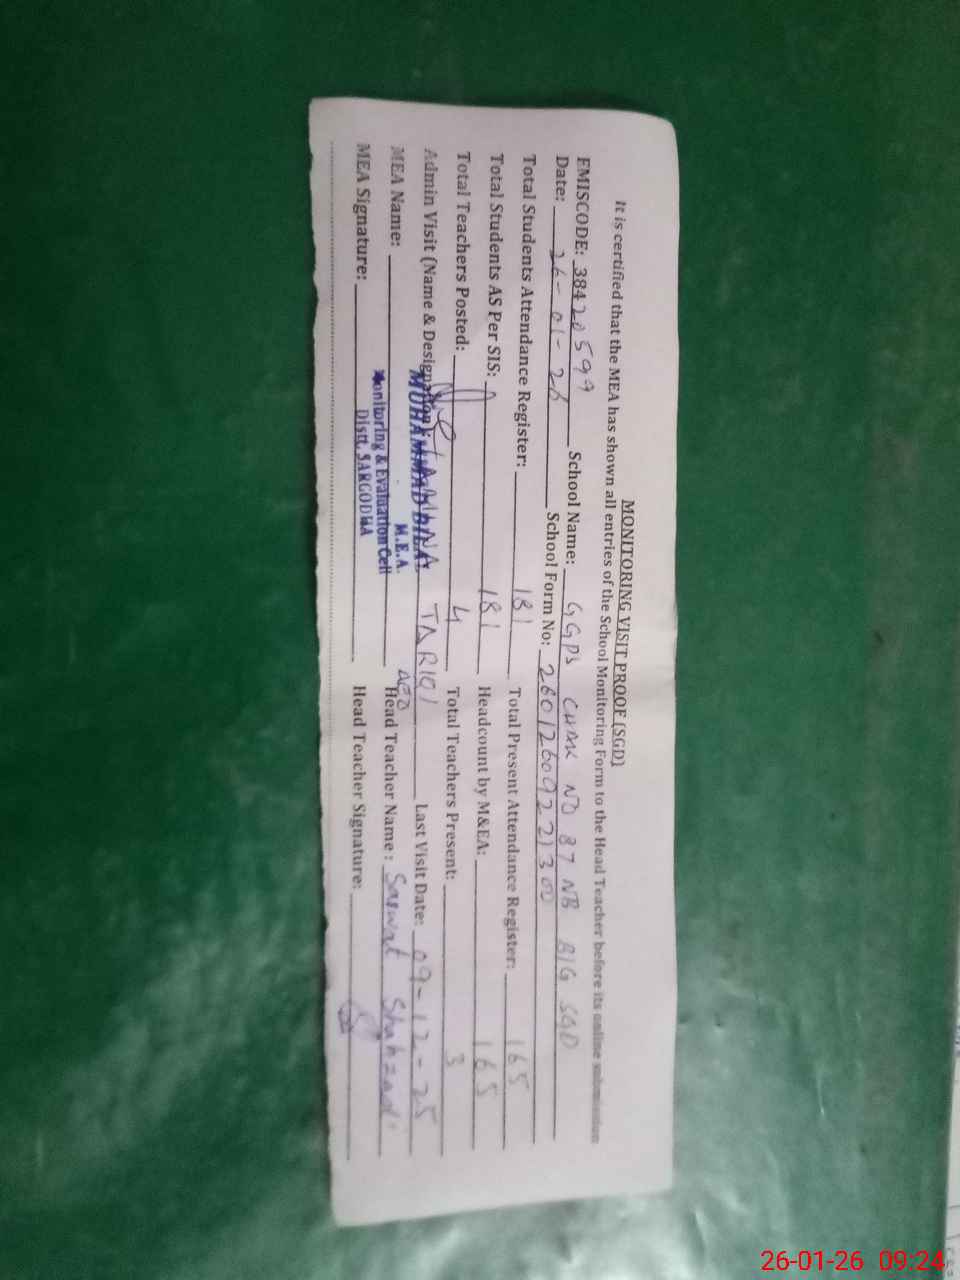 MONITORING VISIT PROOF (SGD)
It is certified that the MEA has shown all entries of the School Monitoring Form to the Head Teacher before its online submission
EMISCODE: 38420599 School Name: GGPS CHAK NO 87 NB BIG SGD
Date: 26-01-26 School Form No: 26012609221300
Total Students Attendance Register: 181 Total Present Attendance Register: 165
Total Students AS Per SIS: 181 Headcount by M&EA: 165
Total Teachers Posted: 4 Total Teachers Present: 3
Admin Visit (Name & Designation): TARIQ AEO Last Visit Date: 09-12-25
MEA Name: MUHAMMAD Head Teacher Name: Sarwat Shahzadi
M.E.A.
MEA Signature: Monitoring & Evaluation Cell Head Teacher Signature:
Distt. SARGODHA
26-01-26 09:24